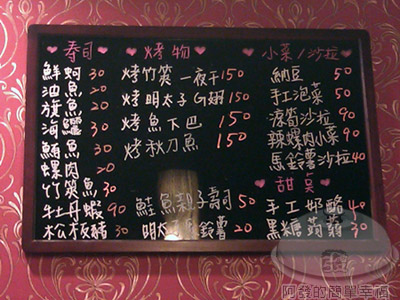 壽司
鮮蚵 30
油魚 20
旗魚 20
海鱺 30
鮪魚 30
螺肉 20
竹筴魚 30
牡丹蝦 90
松板豬 30
烤物
烤竹筴一夜干 150
烤明太子G翅 150
烤魚下巴 150
烤秋刀魚 150
鮭魚親子壽司 50
明太子馬鈴薯 20
小菜/沙拉
納豆 50
手工泡菜 50
涼筍沙拉 90
辣螺肉小菜 90
馬鈴薯沙拉 40
甜點
手工奶酪 40
黑糖蒟蒻 30
阿發的簡單幸福